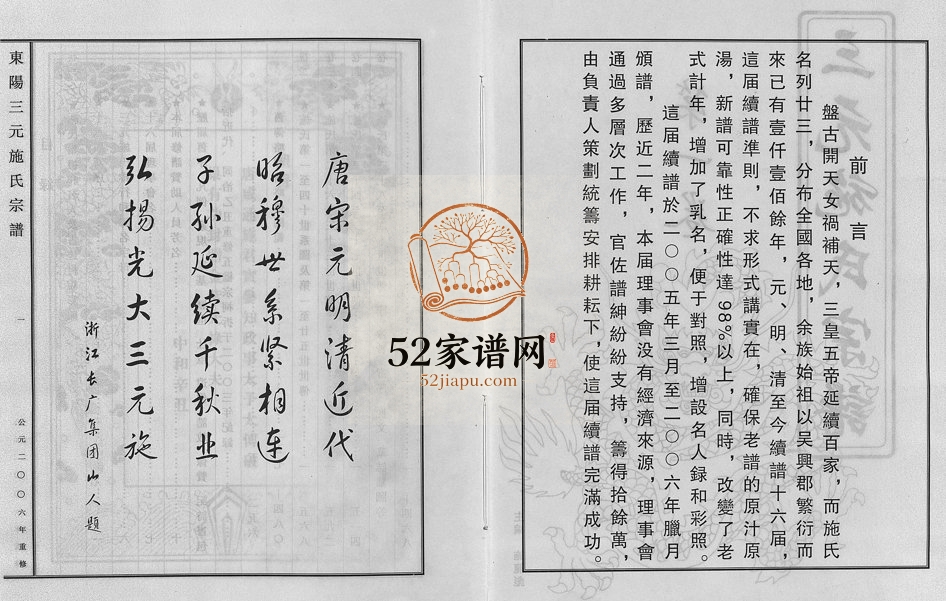 前言
盤古開天女禍補天，三皇五帝延續百家，而施氏
名列廿三，分布全國各地，余族始祖以吴興郡繁衍而
來已有壹仟壹佰餘年，元、明、清至今續譜十六届，
這届續譜準則，不求形式講實在，確保老譜的原汁原
湯，新譜可靠性正確性達98%以上，同時，改變了老
式計年，增加了乳名，便于對照，增設名人録和彩照。
這届續譜於二〇〇五年三月至二〇〇六年臘月
頒譜，歷近二年，本届理事會没有經濟來源，理事會
通過多層次工作，官佐譜紳紛紛支持，籌得拾餘萬，
由負責人策劃統籌安排耕耘下，使這届續譜完滿成功。
唐宋元明清近代
昭穆世系紧相连
子孙延续千秋业
弘揚光大三元施
浙江长广集团山人题
東陽三元施氏宗譜
一
公元二〇〇六年重修
52家谱网
52jiapu.com